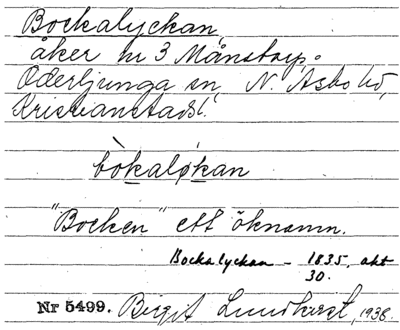 Bockalyckan
åker nr 3 Månstorp.
Oderljunga sn, N. Åsbo hd,
Kristianstads l.
bòkaløkan
"Bocken" ett öknamn.
Bockalyckan – 1835. akt
30.
Nr 5499. Birgit Lundkvist, 1938.